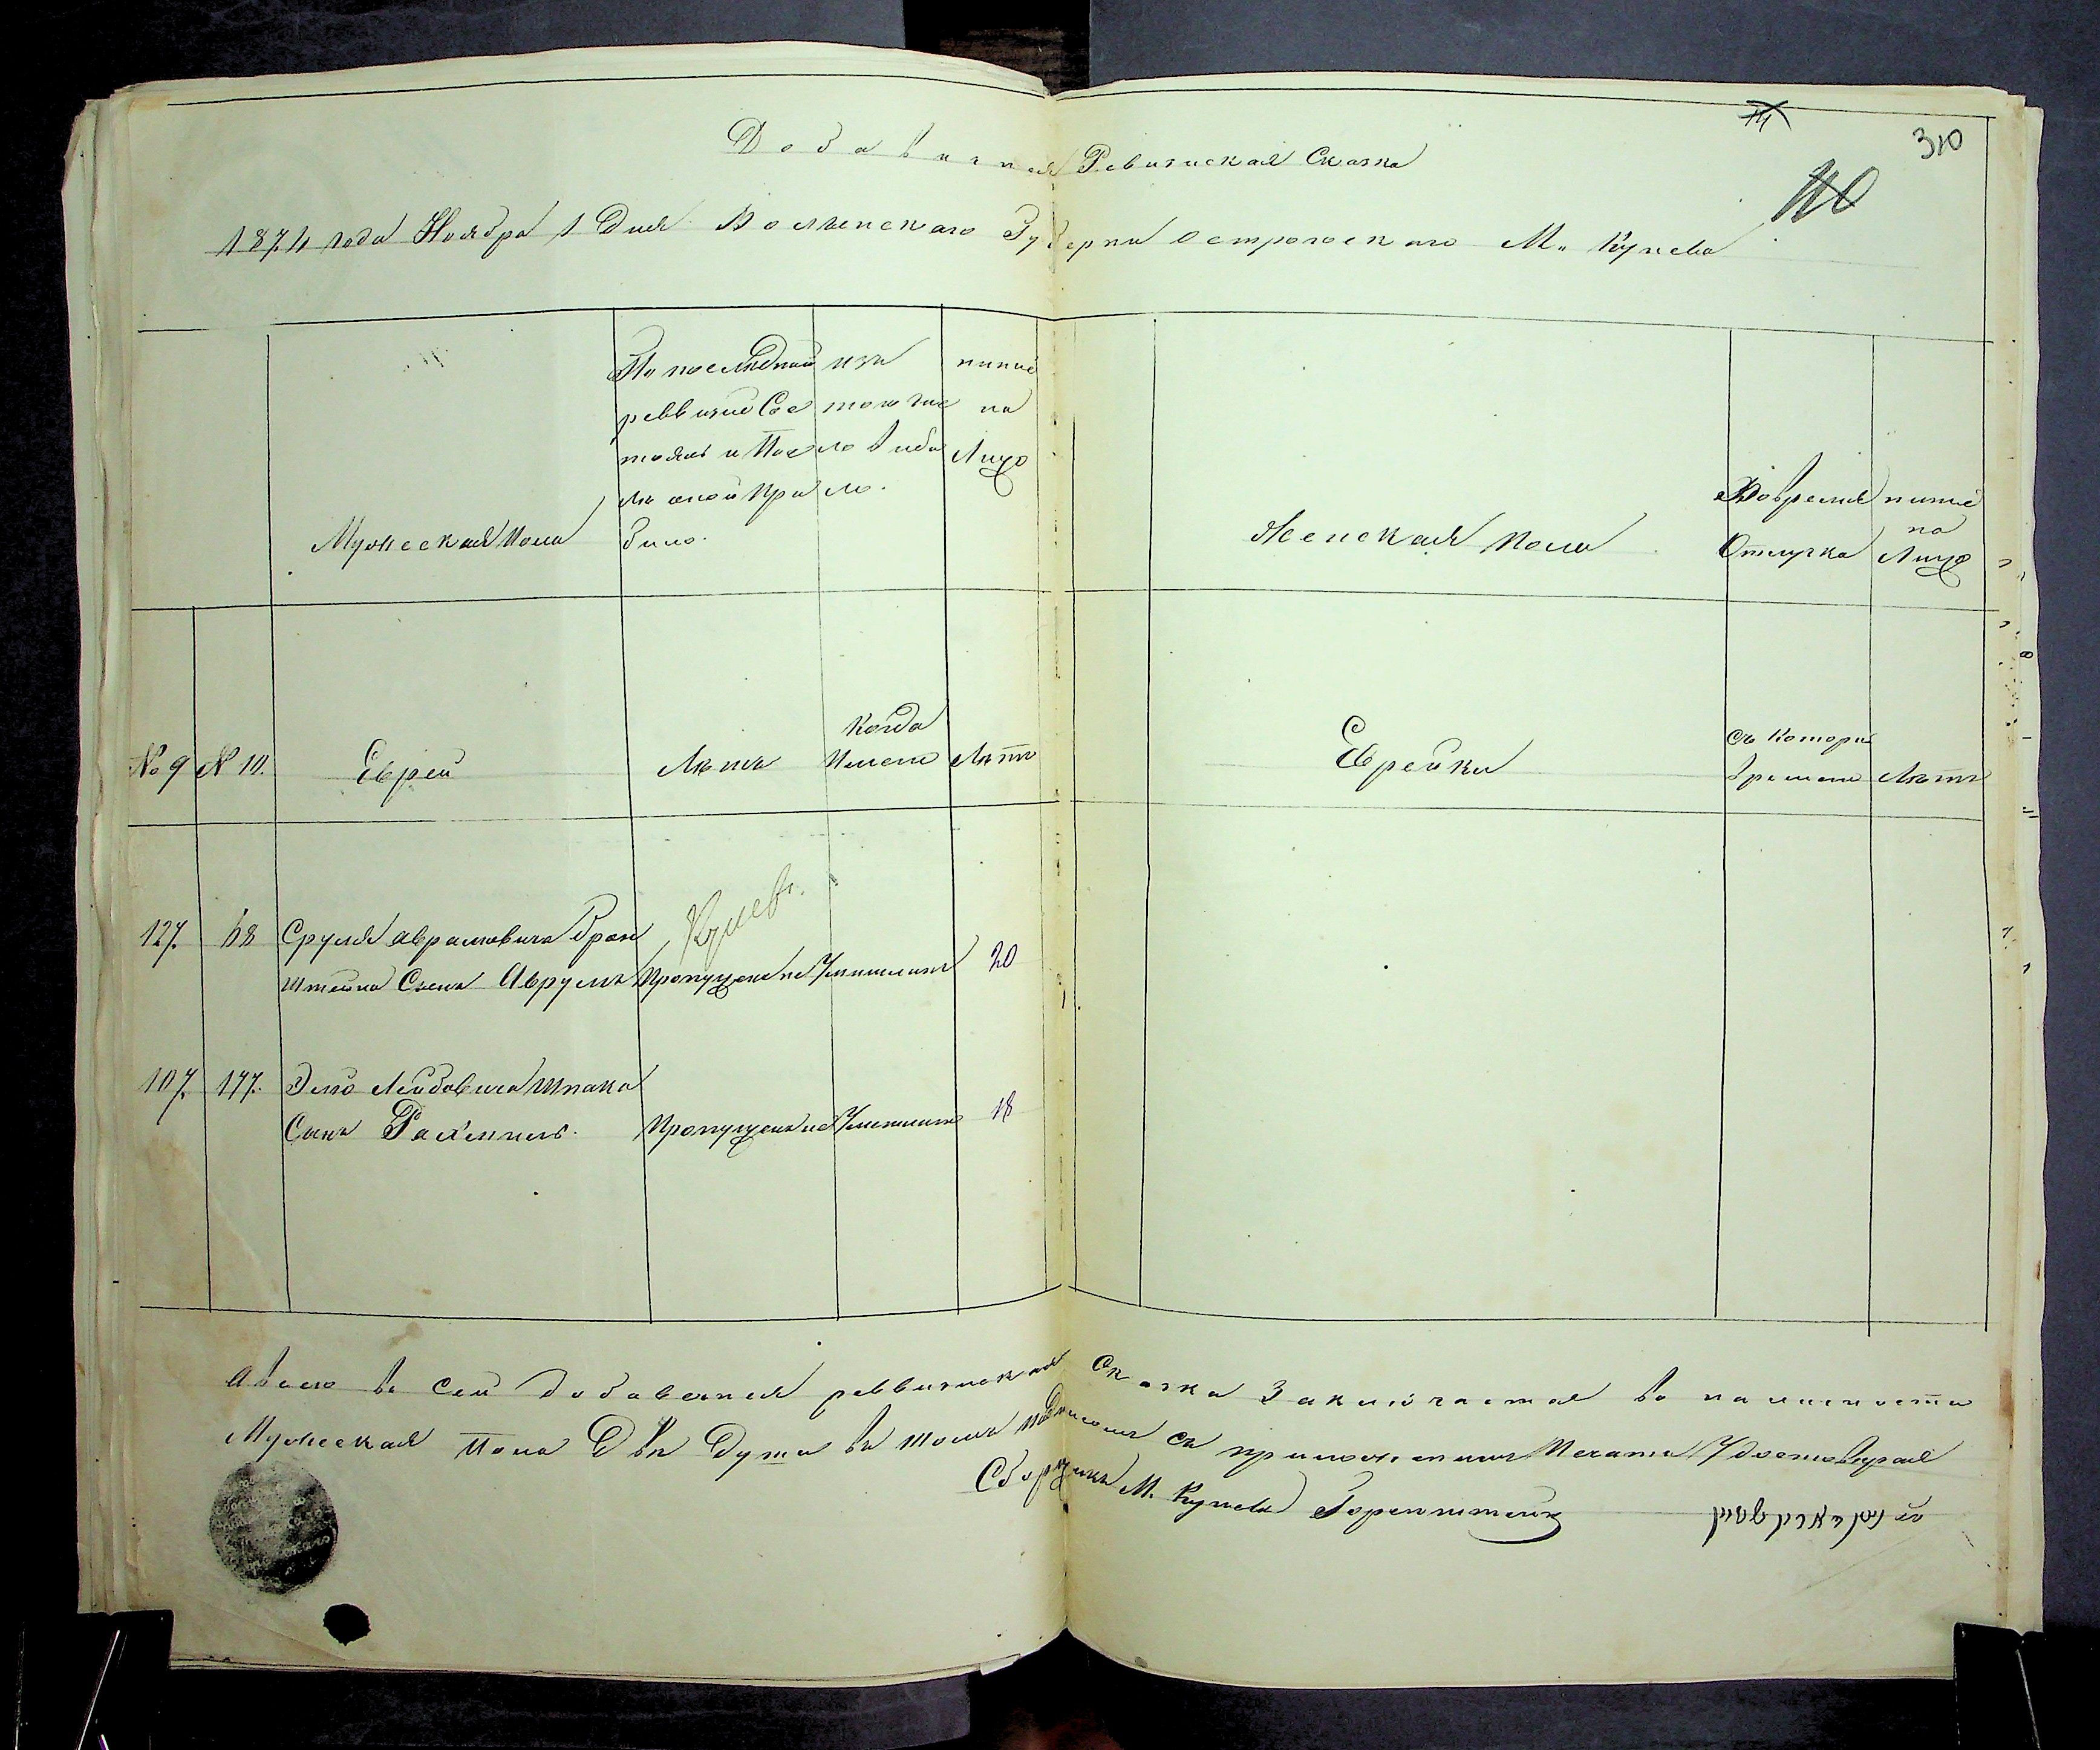 310
Добавочная Ревизиская Сказка
1874 года Ноября 1 Дня Волынскаго Губерни Острогскаго М. Кунева
Мужеская Пола
По последней
ревизие Сос
тоял и После
оной При
было.
изъ
того чис
ла выбы
ло.
нине
на
Лицо
Женская пола
Вовремя
Отлучка
нине
на
Лицо
№ 9 № 10. Еврей Лета Когда Имено Летъ Еврейки Съ Котори времене Летъ
Куневъ.
127. 68 Сруля Аврамовича Брон
штейна Сынъ Аврумъ Пропущенъ по Умишлию 20
107. 177. Элио Лейбовича Шпака
Сынъ Рахмиль. Пропущенъ по Умишлию 18
А всего въ Сей добавочная ревизиская Сказка Заключается во наличности
Мужеская Пола Две Души въ томъ подписомъ съ приложениемъ Печати Удостоверяя
Сборщикъ М. Кунева Горенштейнъ